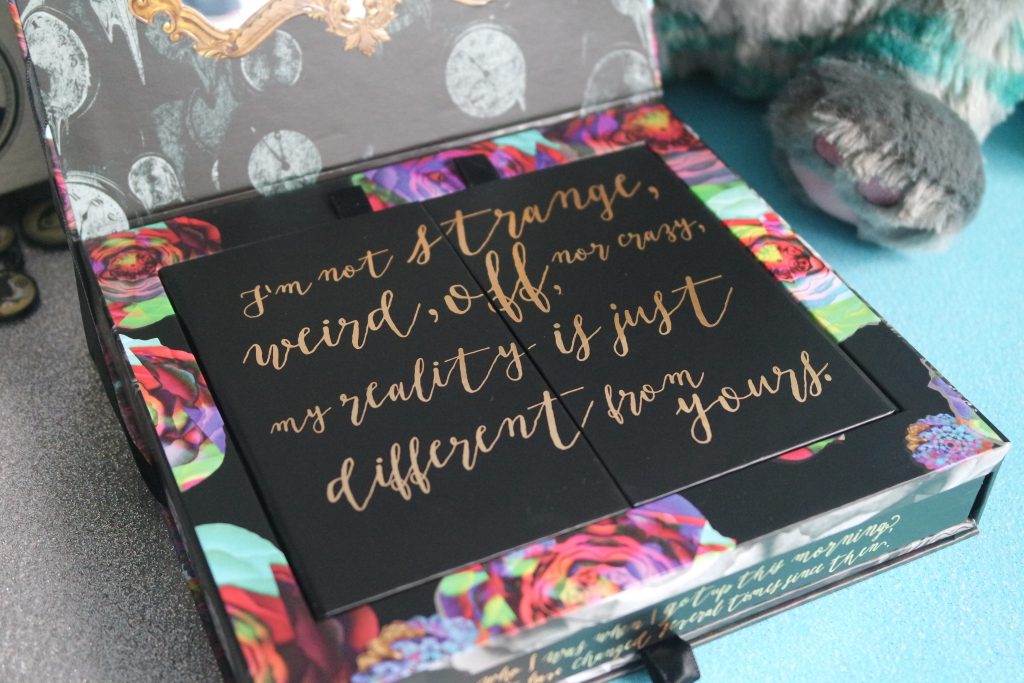 I'm not strange,
weird, off, nor crazy,
my reality is just
different from
yours.
who I was when I got up this morning?
have changed several times since then.